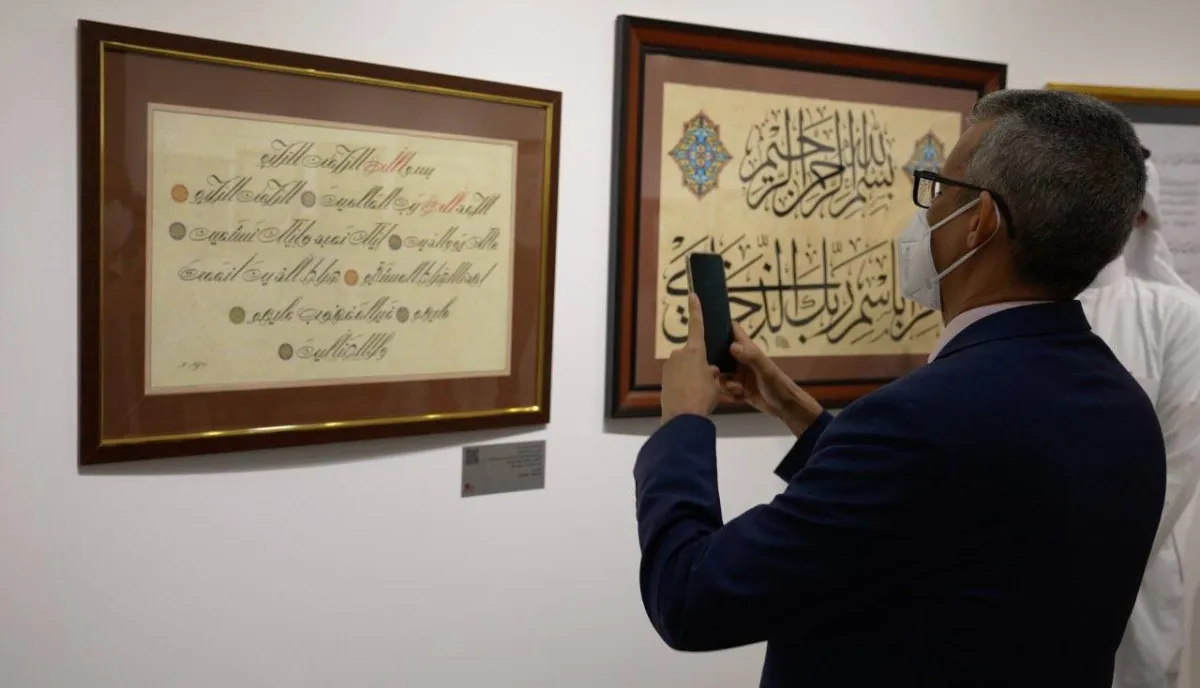 بسم الله الرحمن الرحيم
الحمد لله رب العالمين الرحمن الرحيم
ملك يوم الدين إياك نعبد وإياك نستعين
اهدنا الصراط المستقيم صراط الذين انعمت
عليهم غير المغضوب عليهم
ولا الضالين
بسم الله الرحمن الرحيم
باسم ربك الذي خلق